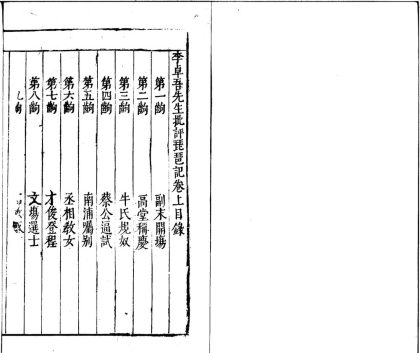 李卓吾先生批評琵琶記卷上目錄
第一齣 副末開場
第二齣 高堂稱慶
第三齣 牛氏規奴
第四齣 蔡公逼試
第五齣 南浦囑别
第六齣 丞相教女
第七齣 才俊登程
第八齣 文場選士